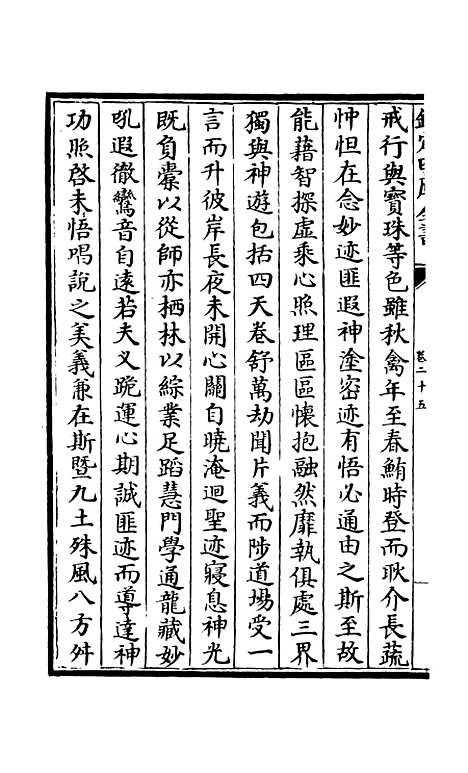 欽定四庫全書
卷二十五
戒行與寶珠等色雖秋禽年至春鮪時登而耿介長蔬
忡怛在念妙迹匪遐神塗密迹有悟必通由之斯至故
能藉智探虛乘心照理區區懷抱融然靡執俱處三界
獨與神遊包括四天卷舒萬劫聞片義而陟道場受一
言而升彼岸長夜未開心關自曉淹迴聖迹寢息神光
既負橐以從師亦栖林以綜業足蹈慧門學通龍藏妙
吼遐徹鸞音自遠若夫叉跪運心期誠匪迹而導達神
功照啓未悟唱說之美義兼在斯暨九土殊風八方舛